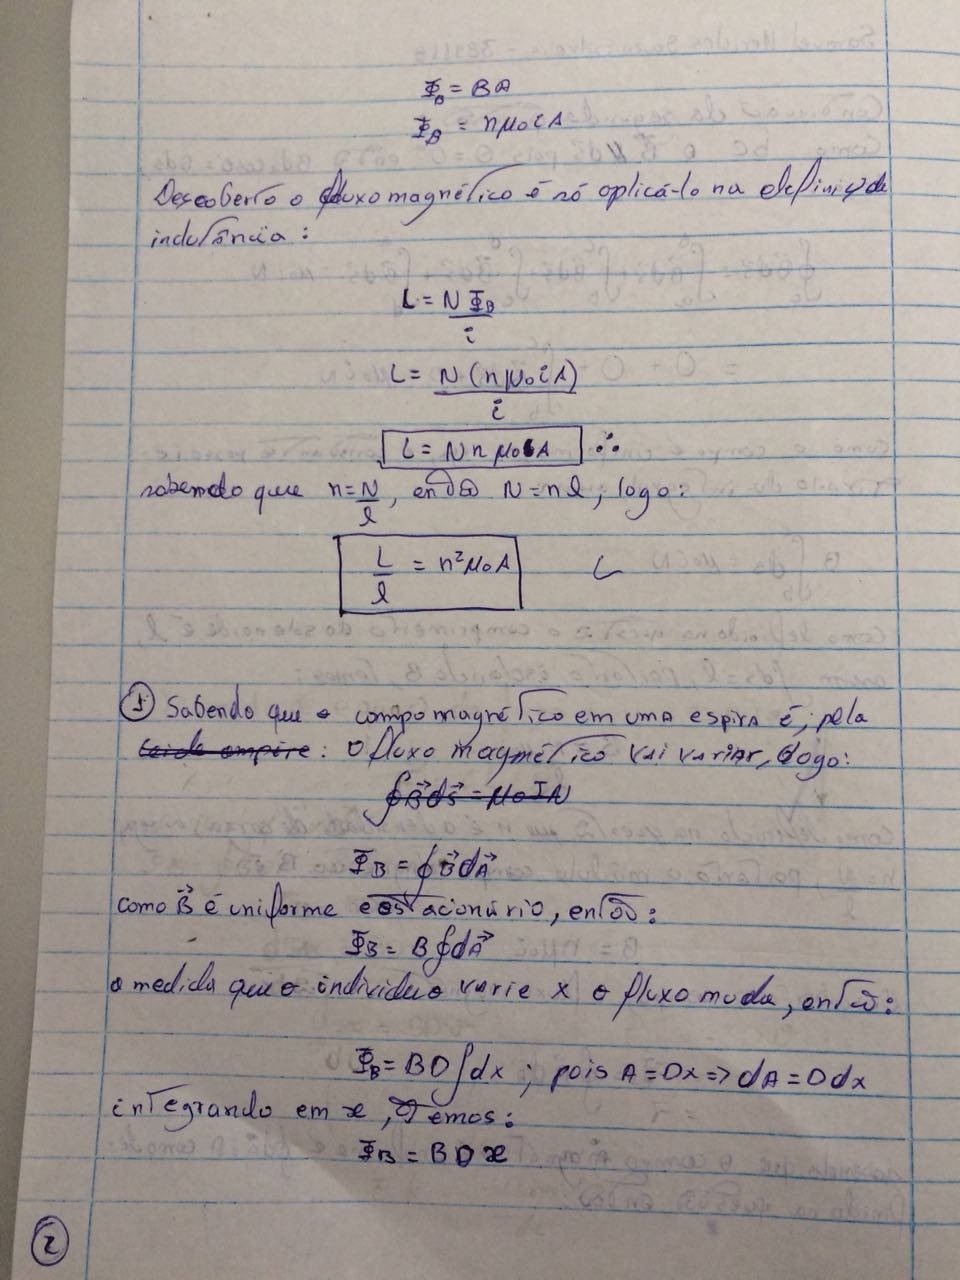 Φ_B = BA
Φ_B = nμ₀iA
Descoberto o fluxo magnético é só aplicá-lo na definiç de
indutância:
L = N Φ_B / i
L = N (nμ₀iA) / i
L = N n μ₀ A ∴
sabendo que n = N/l, então N = nl, logo:
L/l = n²μ₀A
1 Sabendo que o campo magnético em uma espira é, pela
Lei de ampére: O fluxo magnético vai variar, logo:
∮B⃗ds⃗ = μ₀IN
Φ_B = ∮B⃗dA⃗
como B⃗ é uniforme e estacionário, então:
Φ_B = B∮dA⃗
a medida que o individuo varie x o fluxo muda, então:
Φ_B = BD∫dx ; pois A = Dx => dA = Ddx
integrando em x, temos:
Φ_B = BDx
2